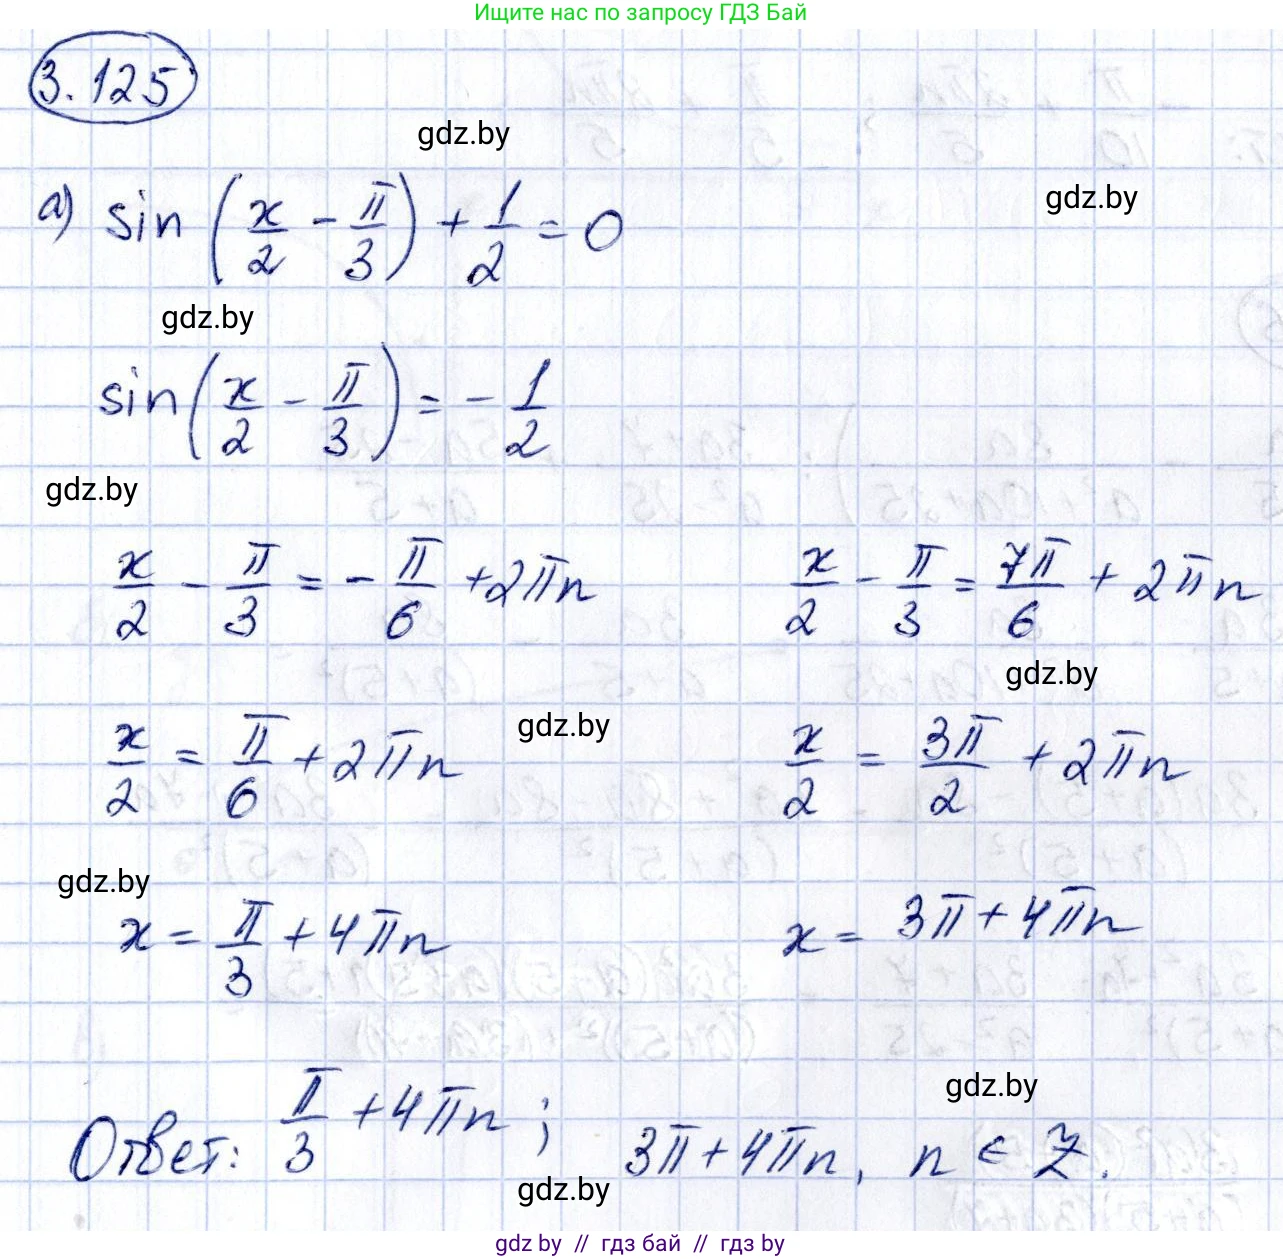 Ищите нас по запросу ГДЗ Бай
3.125
gdz.by
gdz.by
а) sin (x/2 - π/3) + 1/2 = 0
gdz.by
sin (x/2 - π/3) = - 1/2
gdz.by
x/2 - π/3 = - π/6 + 2πn    x/2 - π/3 = 7π/6 + 2πn
gdz.by
gdz.by
x/2 = π/6 + 2πn    x/2 = 3π/2 + 2πn
gdz.by
x = π/3 + 4πn    x = 3π + 4πn
gdz.by
Ответ: π/3 + 4πn; 3π + 4πn, n ∈ Z.
gdz.by
gdz by // гдз бай // gdz by